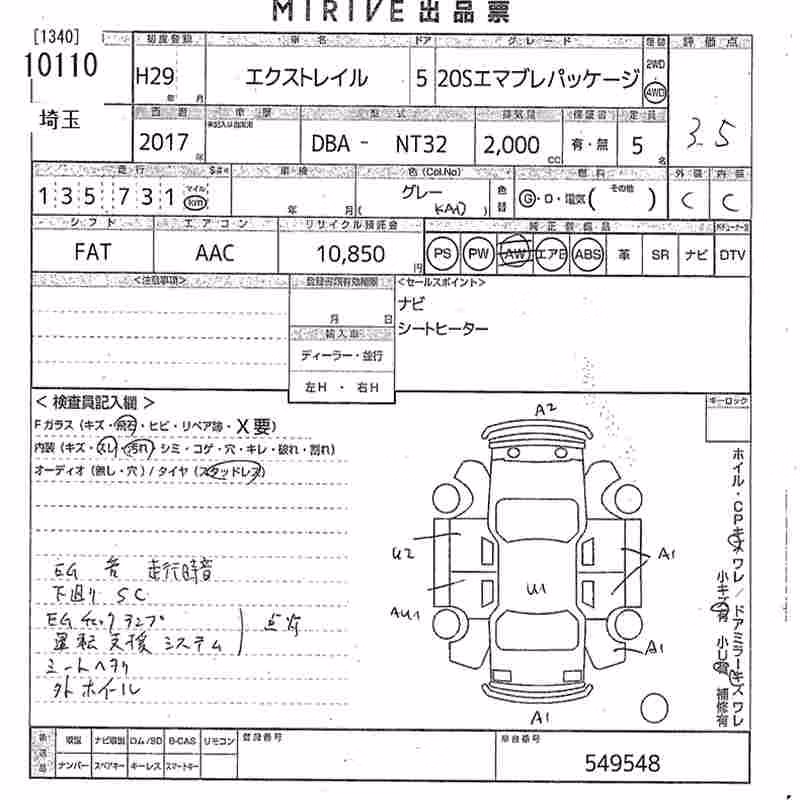 MIRIVE 出品票
[1340] 初度登録 車名 ドア グレード 駆動 評価点
10110 H29 年 月 エクストレイル 5 20Sエマブレパッケージ 2WD 4WD 3.5
埼玉 西暦 車歴 型式 排気量 保証書 定員
2017 年 DBA - NT32 2,000 CC 有・無 5 名
走行 車検 色 (Col.No) 燃料 外装 内装
135,731 マイル km 年 月 グレー (KAD) 色替 G・D・電気 (その他 ) C C
シフト エアコン リサイクル預託金 純正装備品
FAT AAC 10,850 円 PS PW AW エアB ABS 革 SR ナビ DTV
<注意事項> 登録書類有効期限 <セールスポイント>
月 日 ナビ
輸入車 シートヒーター
ディーラー・並行
左H ・ 右H
< 検査員記入欄 > キーロック
Fガラス (キズ・飛石・ヒビ・リペア跡・X要)
内装 (キズ・スレ・汚れ・シミ・コゲ・穴・キレ・破れ・割れ)
オーディオ (無し・穴) / タイヤ (スタッドレス)
A2
U2 A1
U1
AU1 A1
A1
EG 音 走行時音
下廻り SC
EGチェックランプ 点灯
運転支援システム
シートヘタリ
外ホイール
ホイール・CPキズ ワレ / ドアミラーキズ ワレ
小キズ有 小U有 補修有
後送品 取説 ナビ取説 ロム/SD B-CAS リモコン 登録番号 車台番号
ナンバー スペアキー キーレス スマートキー 549548